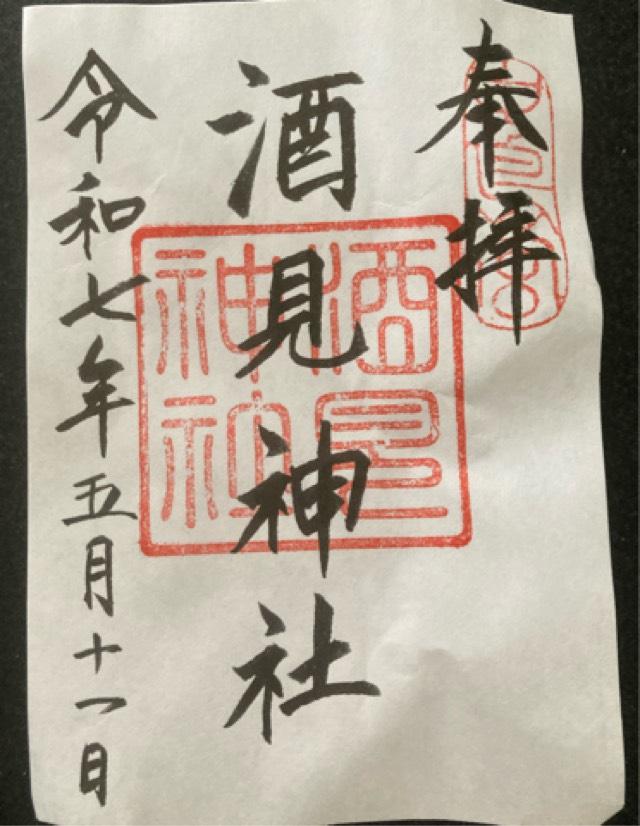 奉拝
酒見神社
酒見神社
令和七年五月十一日